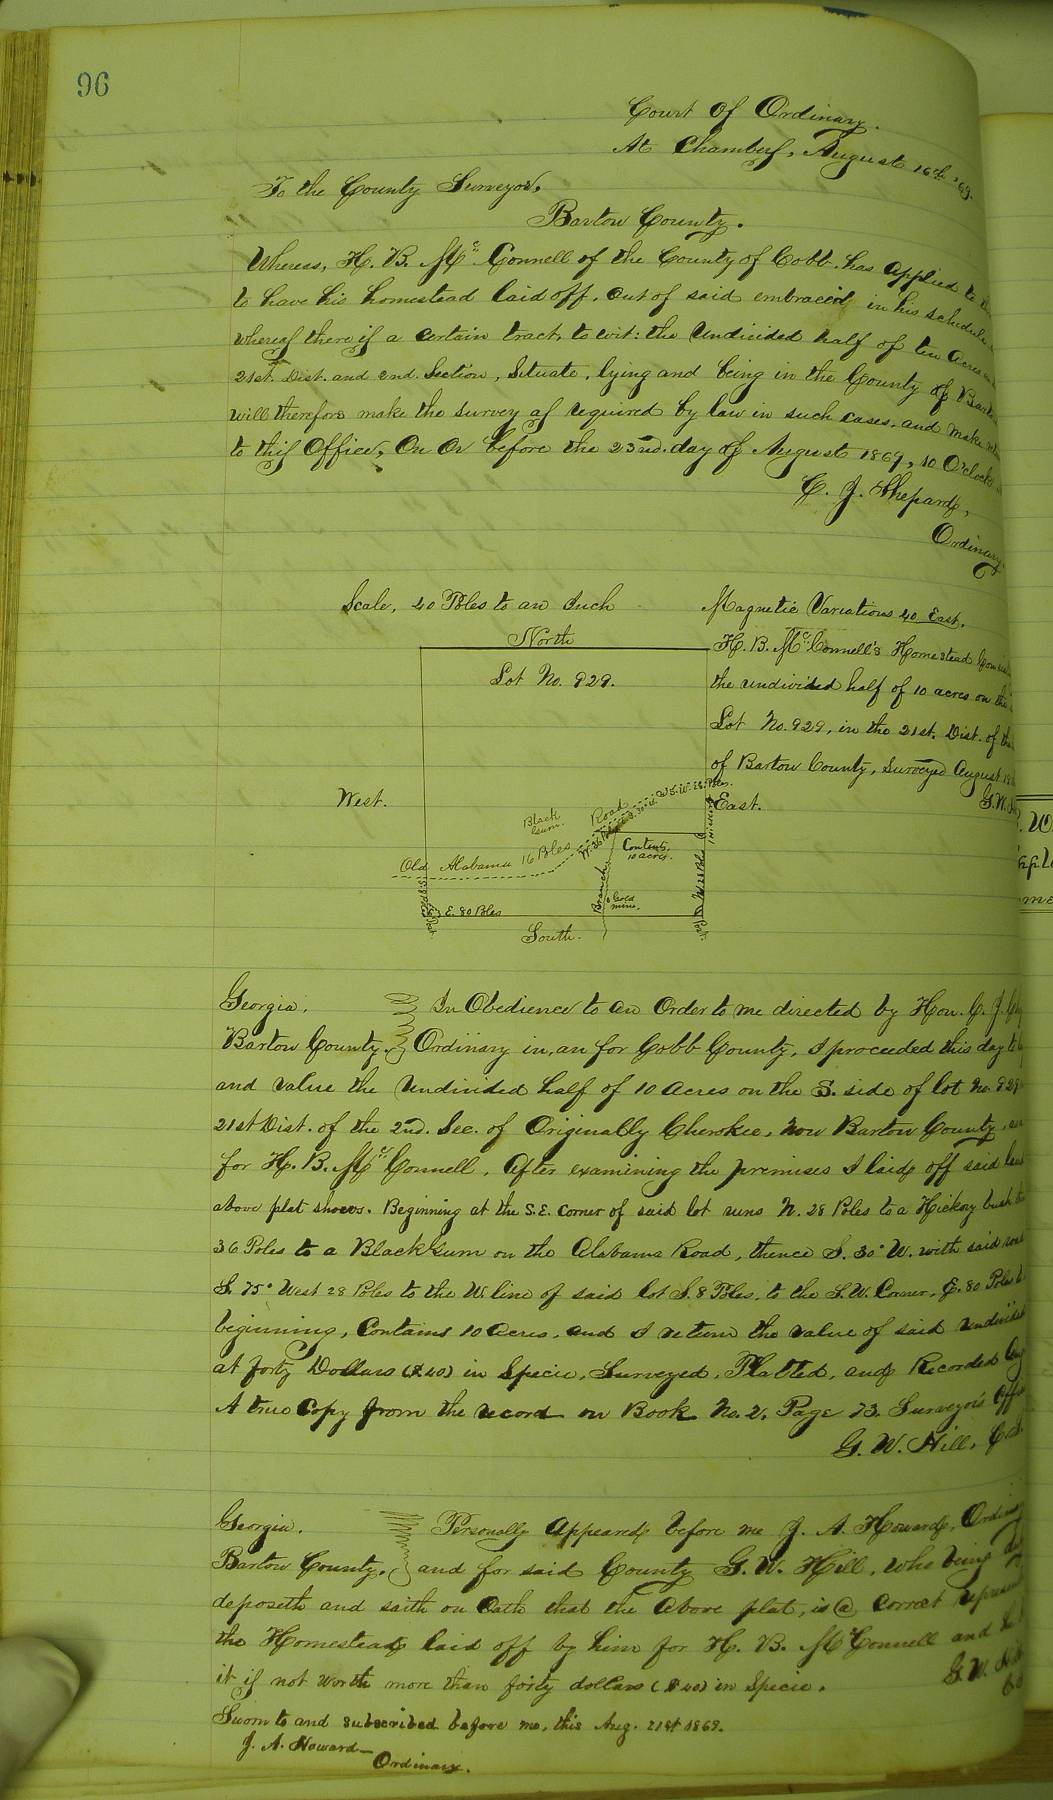 96
Court of Ordinary.
At Chambers, August 16th '69.
To the County Surveyor,
Bartow County.
Whereas, H. B. McConnell of the County of Cobb has applied to
to have his homestead laid off, out of said embraced in his schedule
whereas there is a certain tract, to wit: the undivided half of ten acres
21st. Dist. and 2nd. Section, Situate, lying and being in the County of Bartow
will therefore make the survey as required by law in such cases, and make
to this Office, On Or before the 23rd. day of August 1869, 10 O'clock
C. J. Shepard,
Ordinary
Scale, 40 Poles to an Inch
Magnetic Variations 40 East.
North
H. B. McConnell's Homestead
Lot No. 929.
the undivided half of 10 acres on the
Lot No. 929, in the 21st. Dist. of the
of Bartow County, Surveyed August
G. W.
West.
East.
Black Gum.
Road
S. W. 28 Poles.
Old Alabama 16 Poles
Content, 10 acres.
Branch
Gold mine.
E. 80 Poles
South.
Georgia. In Obedience to an Order to me directed by Hon. C. J.
Bartow County. Ordinary in, an for Cobb County, I proceeded this day to
and value the Undivided half of 10 Acres on the S. side of lot No. 929
21st Dist. of the 2nd. Sec. of Originally Cherokee, Now Bartow County,
for H. B. McConnell, After examining the premises I laid off said land
above plat shows. Beginning at the S.E. corner of said lot runs N. 28 Poles to a Hickory bush
36 Poles to a Black Gum on the Alabama Road, thence S. 30° W. with said road
S. 75° West 28 Poles to the W. line of said lot S. 8 Poles, to the S.W. Corner, E. 80 Poles
beginning, Contains 10 Acres, and I return the value of said Undivided
at forty Dollars ($40) in Specie, Surveyed, Platted, and Recorded
A true Copy from the record on Book No. 2, Page 73. Surveyor's Office
G. W. Hill, C.S.
Georgia. Personally Appeared before me J. A. Howard, Ordinary
Bartow County. and for said County G. W. Hill, who being
deposeth and saith on Oath that the Above plat, is a correct
the Homestead laid off by him for H. B. McConnell and
it is not worth more than forty dollars ($40) in Specie.
G. W.
Sworn to and subscribed before me, this Aug. 21st 1869.
J. A. Howard
Ordinary.